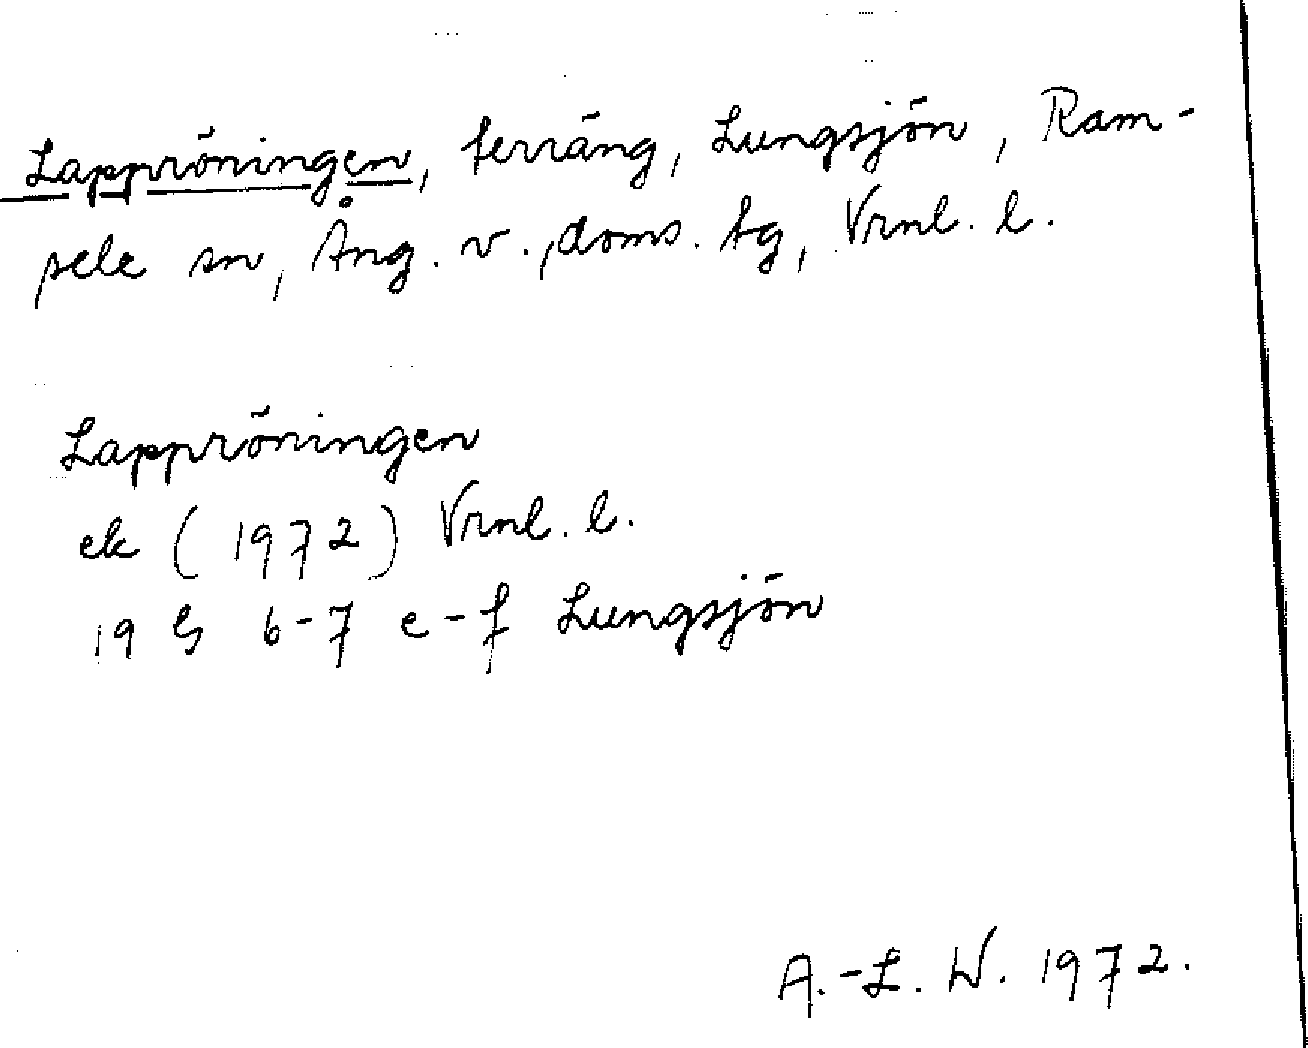 Lappröningen, terräng, Lungsjön, Ram-
sele sn, Ång. v., doms. tg, Vrnl. l.
Lappröningen
ek (1972) Vrnl. l.
19 G 6-7 e-f Lungsjön
A.-L. W. 1972.